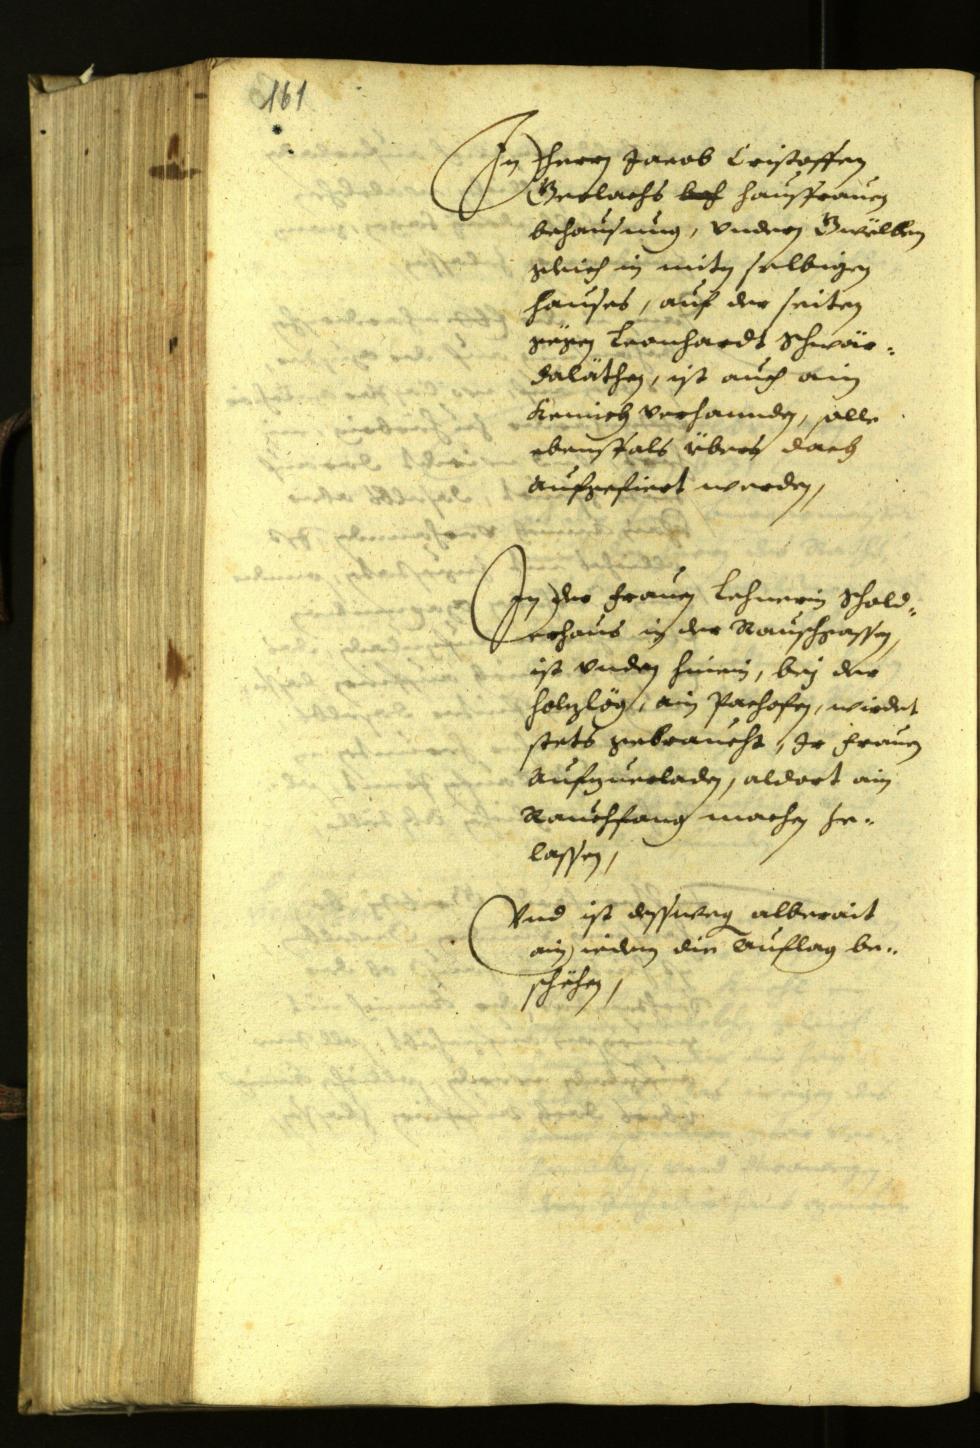 161
In Herrn Jacob Cristoffen
Gerlachs beh haussfrauen
behausung, vndern Gwelben
gleich in mitn selbigen
hauses, auf der seiten
gegen Leonhardt Schwär-
daläthen, ist auch ain
Kemich verhannden, solle
ebenfals übers dach
aufgefiert werden,
In der Frauen Lehnerin Schold-
erhaus in der Rauschgassen,
ist vnden hinein, bey der
holzlög, ain Pachofen, wirdet
stets gebraucht, Ir Frauen
Aufzuerladen, aldort ain
Rauchfang machen ze-
lassen,
Vnd ist dessweg alberait
ain iedem die Auflag be-
schehen,